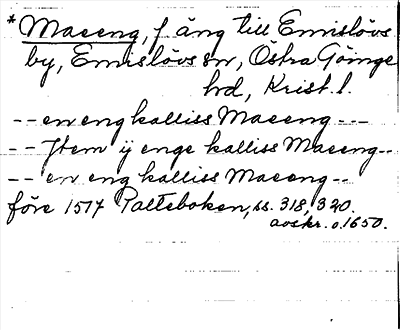 * Maeeng, f. äng till Emislövs
by, Emislövs sn, Östra Göinge
hd, Krist. l.
-- en eng kalliss Maeeng ---
-- Jtem ij enge kalliss Maeeng --
-- en eng kalliss Maeeng --
före 1514 Palteboken, ss. 318, 320.
avskr. o. 1650.